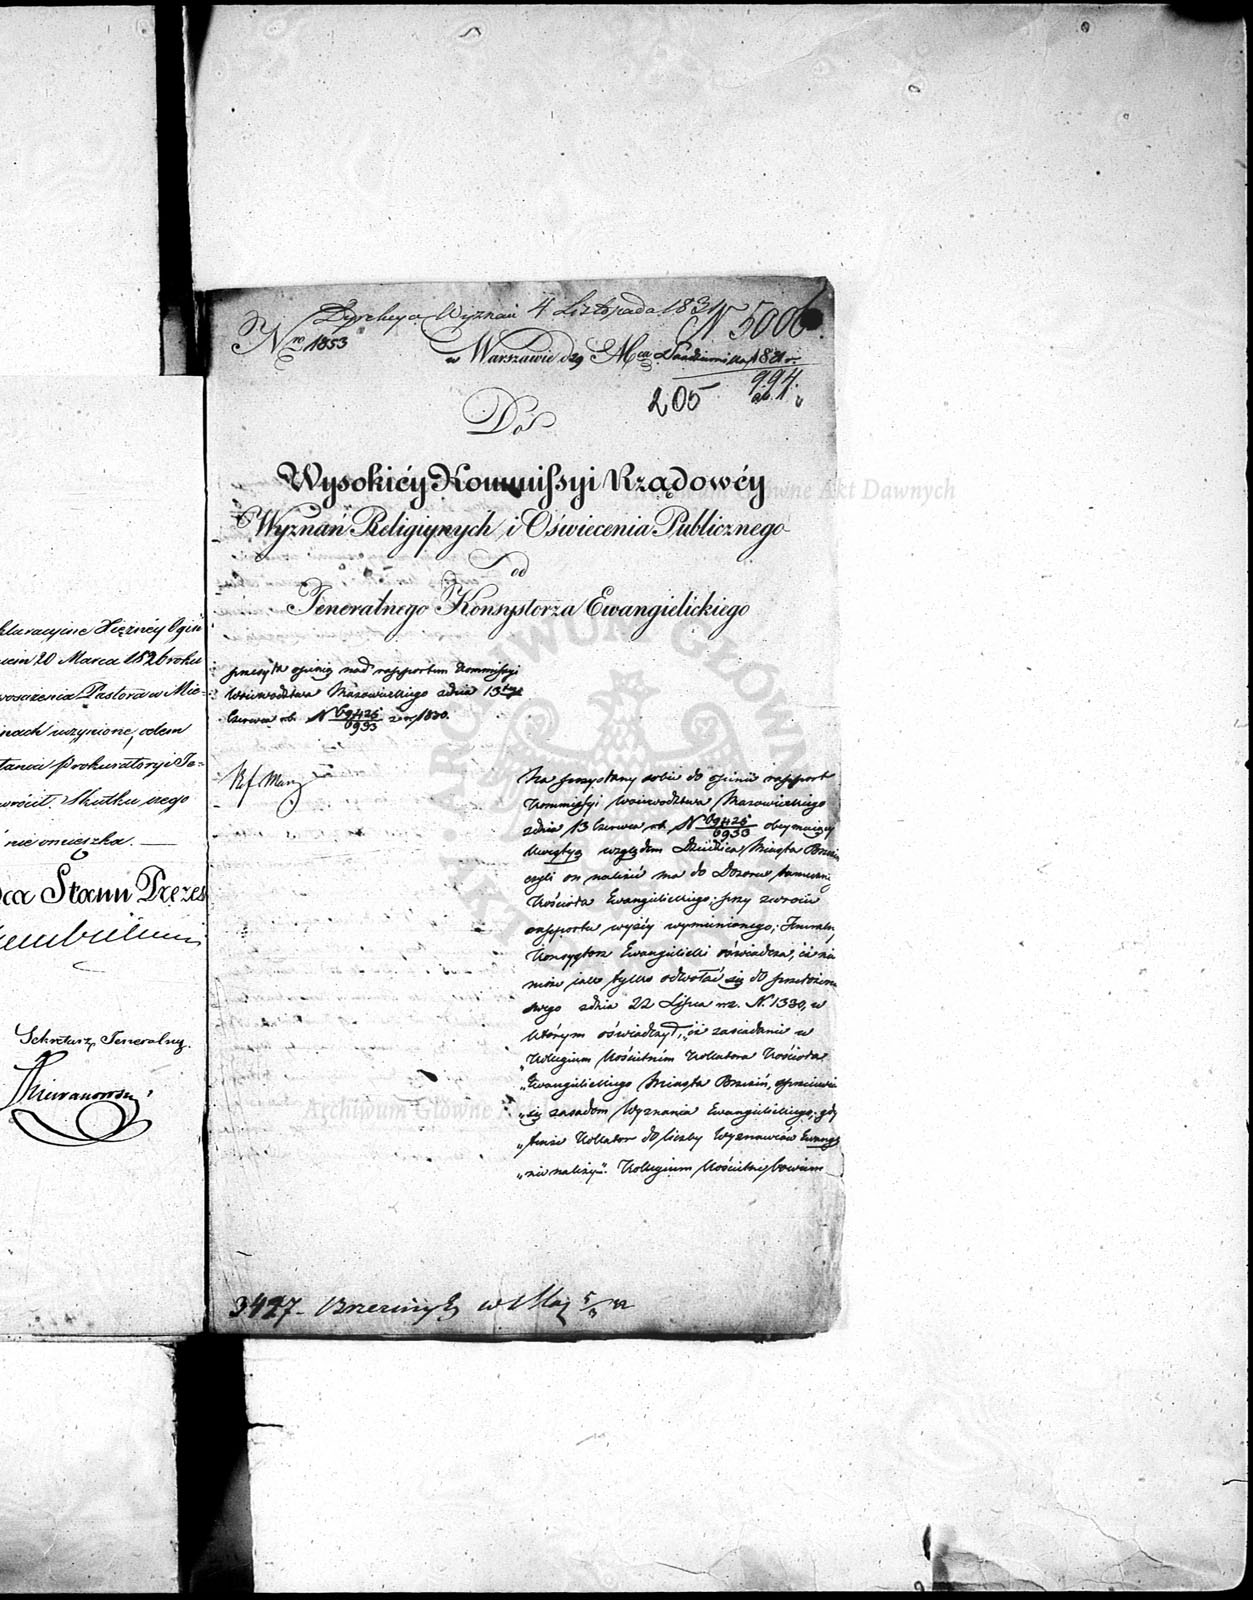 klaracyine Xiężnéy Ogiń
niem 20 Marca 1826 roku
wosażenia Pastora w Mie-
nach uczynione, celem
tania Prokuratoryi Je-
wrócił. Skutku czego
nie omieszka.
ca Stanu Prezes
Sekretarz Jeneralny.
Dyrekcya Wyznań 4 Listopada 1831
N 5006
Nro 1853
w Warszawie d. 29 Mca Października 1831 r.
994.
205
Do
Wysokiéy Kommissyi Rządowéy
Wyznań Religiynych i Oświecenia Publicznego
od
Jeneralnego Konsystorza Ewangielickiego
Archiwum Główne Akt Dawnych
przesyła opinię nad rapportem Kommissyi
Woiewództwa Mazowieckiego z dnia 13tego
Czerwca rb. N 69425/6953 z r. 1830.
Ref. Marz
Na przysłany sobie do opinii rapport
Kommissyi Woiewództwa Mazowieckiego
z dnia 13 Czerwca rb. N 69425/6953 obeymuiący
kwestyą względem Dziedzica Miasta Brzezin
czyli on należeć ma do Dozoru tamecz.
Kościoła Ewangielickiego; przy zwrocie
rapportu wyżéy wymienionego, Jeneralny
Konsystorz Ewangielicki oświadcza, iż nie
może iak tylko odwołać się do przełożenia
swego z dnia 22 Lipca rz. N. 1330, w
którym oświadczył, „iż zasiadanie w
„Kollegium Kościelnem Kollatora Kościoła
„Ewangielickiego Miasta Brzezin, sprzeciwia
„się zasadom Wyznania Ewangielickiego, gdy
„tenże Kollator do liczby Wyznawców Ewang.
„nie należy". Kollegium Kościelne bowiem
Archiwum Główne Akt Dawnych
ARCHIWUM GŁÓWNE AKT
3427- Brzeziny w Maz 5/3 32